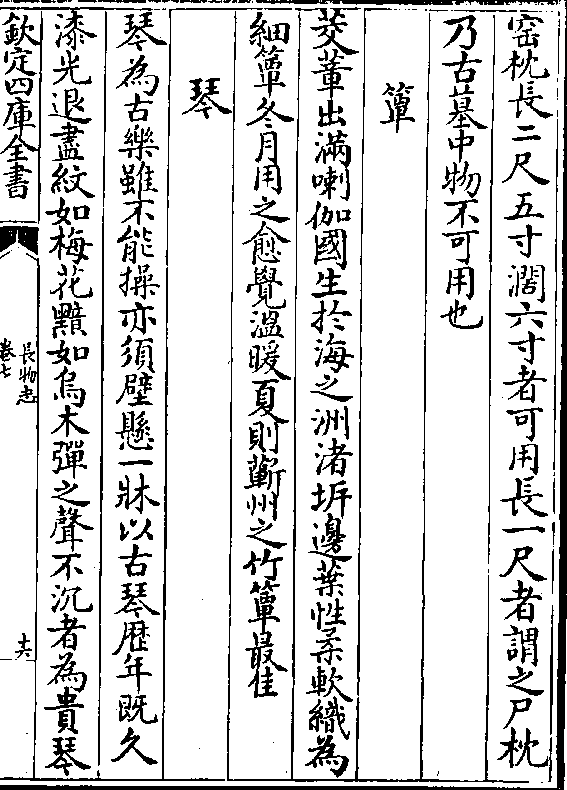 窑枕長二尺五寸濶六寸者可用長一尺者謂之尸枕
乃古墓中物不可用也
簟
茭蕈出滿喇伽國生於海之洲渚岍邊葉性柔軟織為
細簟冬月用之愈覺溫暖夏則蘄州之竹簟最佳
琴
琴為古樂雖不能操亦須壁懸一牀以古琴歷年既久
漆光退盡紋如梅花黯如烏木彈之聲不沉者為貴琴
欽定四庫全書
長物志
卷七
十六